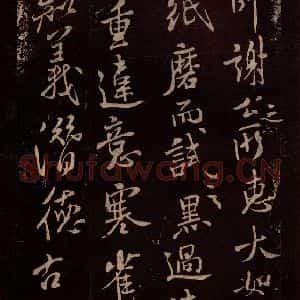 謝公所惠大如
紙磨而試之黑過
重達意寒雀
知義溺德古
Shufawang.CN